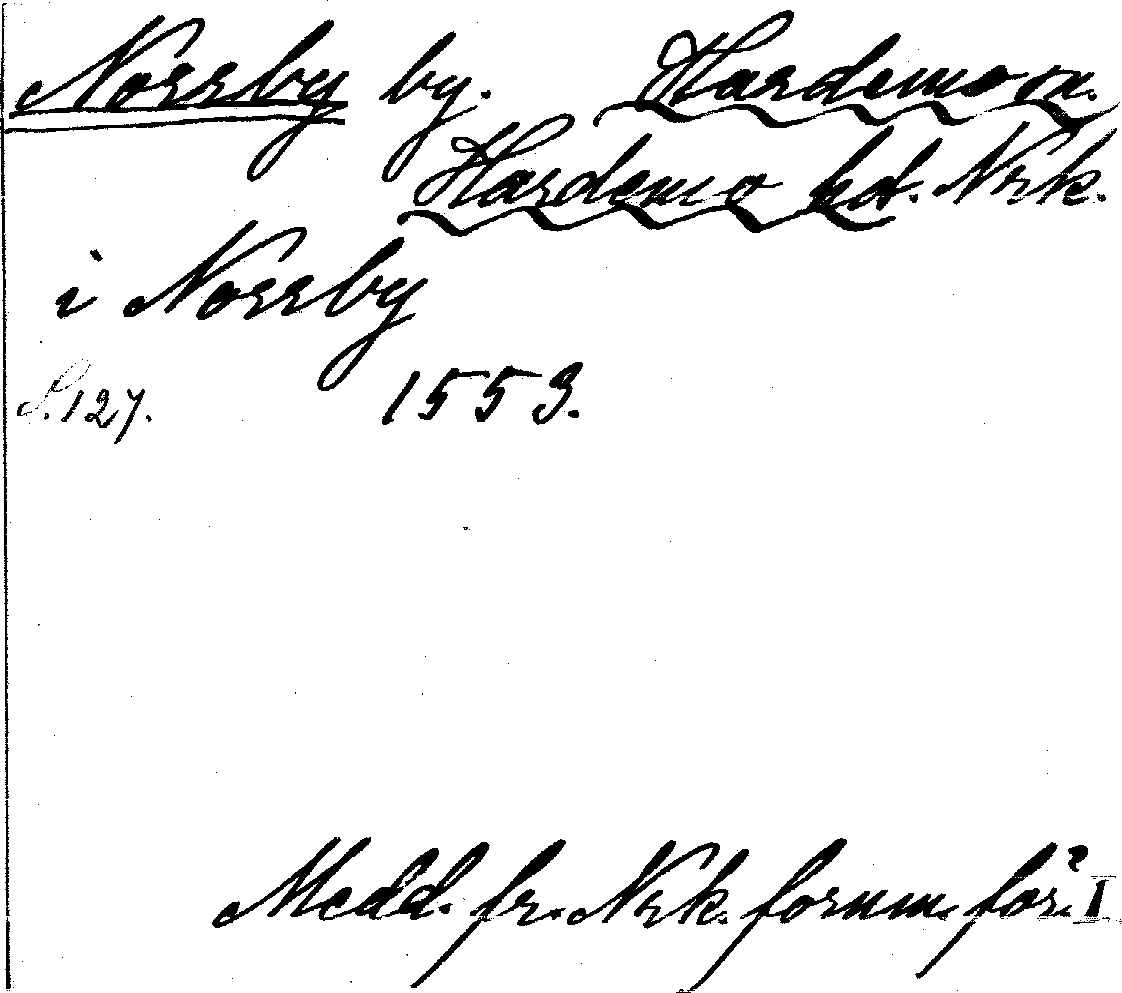 Norrby by. Hardemo sn.
Hardemo hd. Nrk.
i Norrby
S. 127. 1553.
Medd. fr. Nrk. fornm. för. I